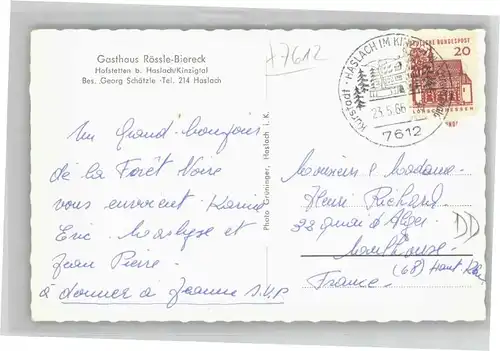 Gasthaus Rössle-Biereck
Hofstetten b. Haslach/Kinzigtal
Bes. Georg Schätzle · Tel. 214 Haslach
77612
HASLACH IM KINZIG
Kurstadt
23.5.66
7612
DEUTSCHE BUNDESPOST
20
LORSCH HESSEN
Un Grand bonjour
de la Forêt Noire
vous envoient
Eric et
Jean Pierre.
à donner à Jeanne S.V.P
Photo Gruninger, Haslach i. K.
Monsieur & Madame
Henri Richard
22 quai d'Alger
Moulhouse
(68) Haut Rhin
France
DD